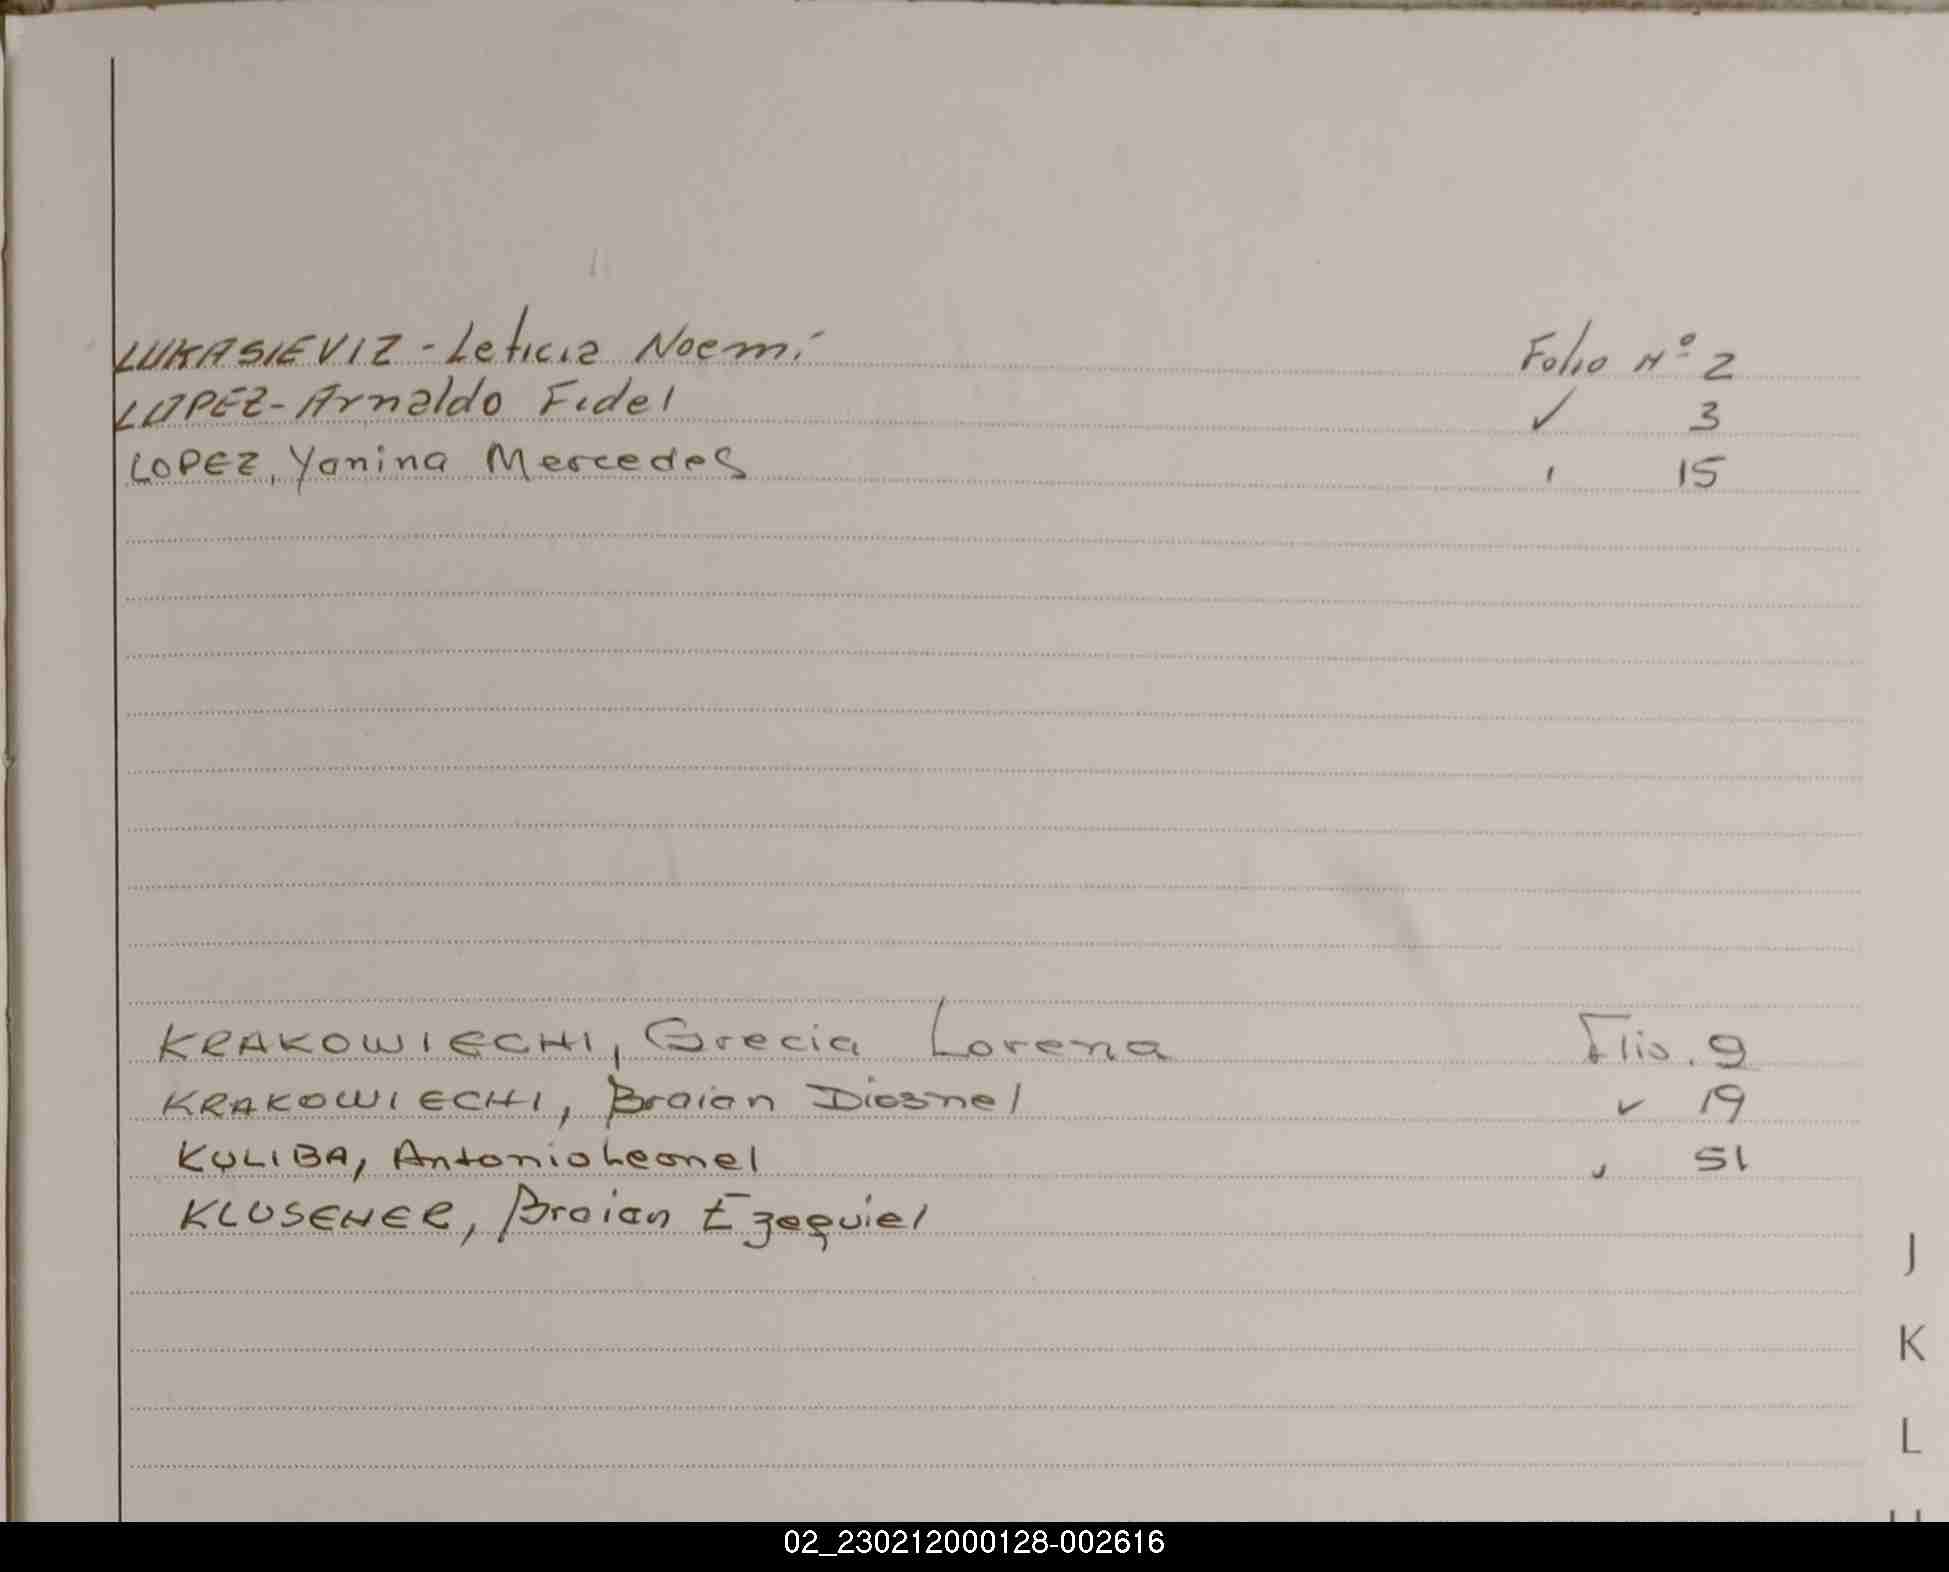 LUKASIEVIZ - Leticia Noemí Folio Nº 2
LOPEZ - Arnaldo Fidel ✓ 3
LOPEZ, Yanina Mercedes ' 15
KRAKOWIECHI, Grecia Lorena Flio. 9
KRAKOWIECHI, Braian Diosnel ✓ 19
KULIBA, Antonio Leonel ✓ 51
KLUSENER, Braian Ezequiel
J
K
L
02_230212000128-002616